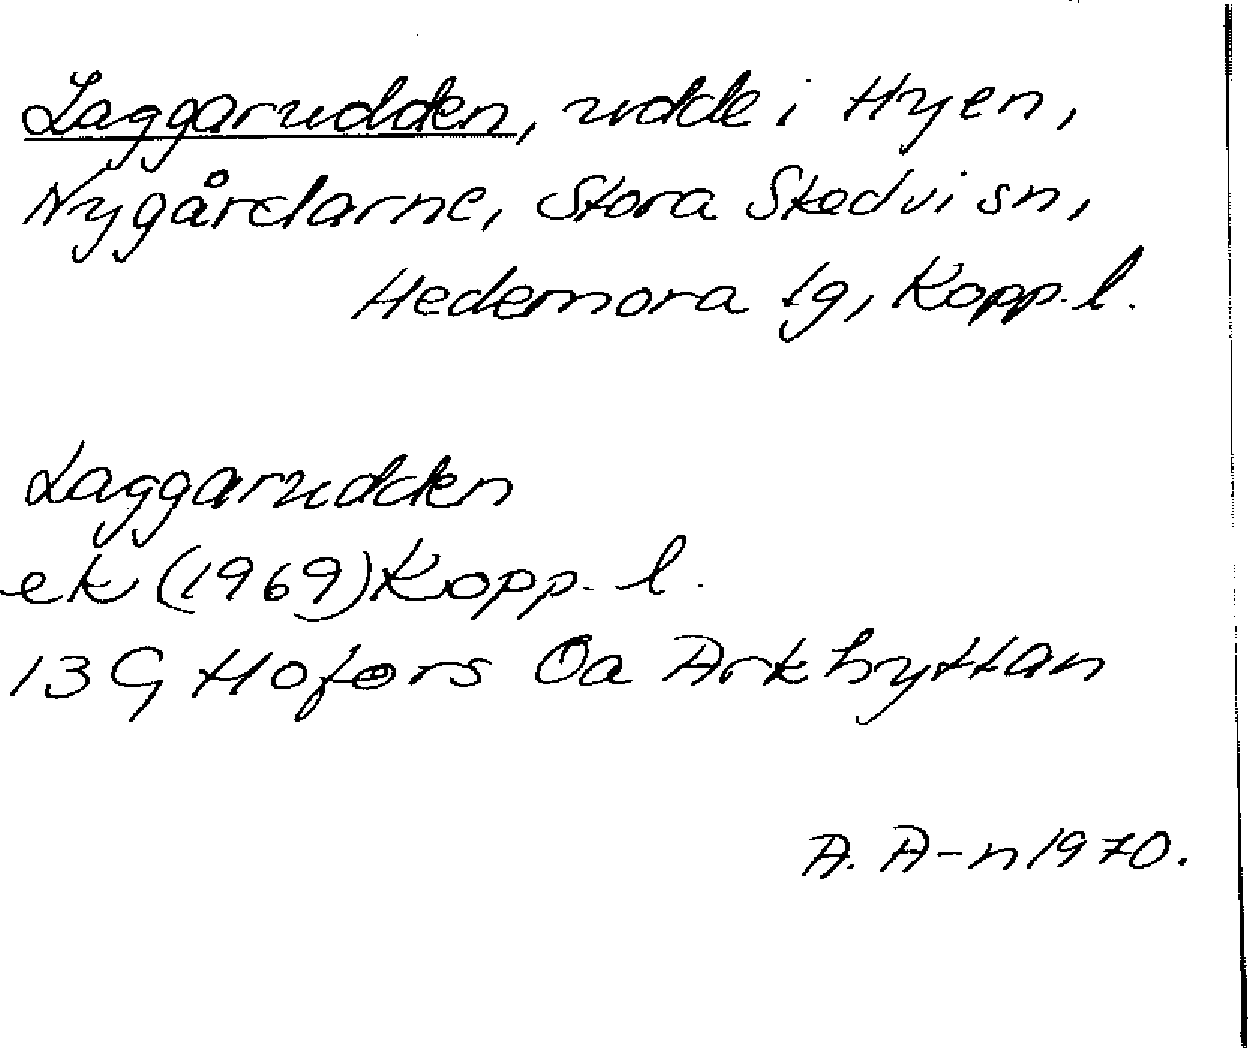 Laggarudden, udde i Hyen,
Nygårdarne, Stora Skedvi sn,
Hedemora tg, Kopp. l.
Laggarudden
ek (1969) Kopp. l.
13 G Hofors 0a Arkhyttan
A. A-n 1970.